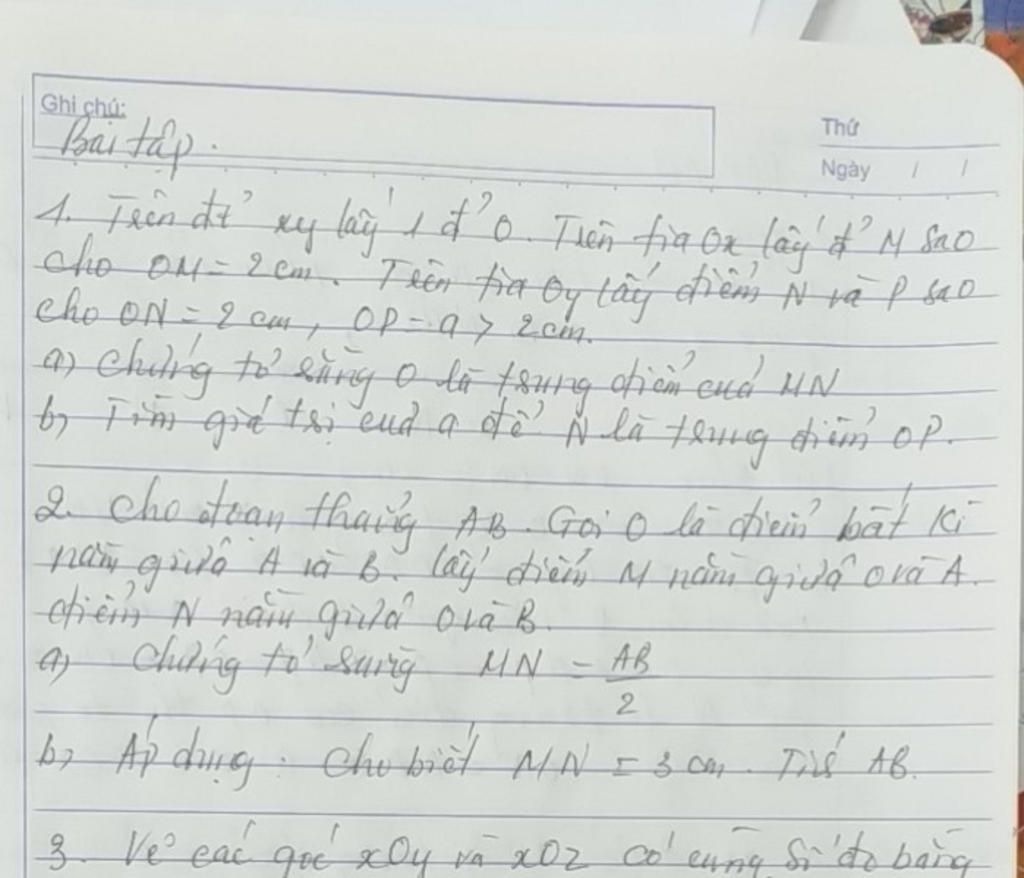 Ghi chú:
Bài tập.
Thứ
Ngày / /
1. Trên đt' xy lấy 1 đ' O. Trên tia Ox lấy đ' M sao
cho OM = 2cm. Trên tia Oy lấy điểm N và P sao
cho ON = 2cm, OP = a > 2cm.
a) Chứng tỏ rằng O là trung điểm của MN
b) Tìm giá trị của a để N là trung điểm OP.
2. Cho đoạn thẳng AB. Gọi O là điểm bất kì
nằm giữa A và B. lấy điểm M nằm giữa O và A.
điểm N nằm giữa O và B.
a) Chứng tỏ rằng MN = AB/2
b) Áp dụng: Cho biết MN = 3 cm. Tính AB.
3. Vẽ các góc xOy và xOz có cùng số đo bằng